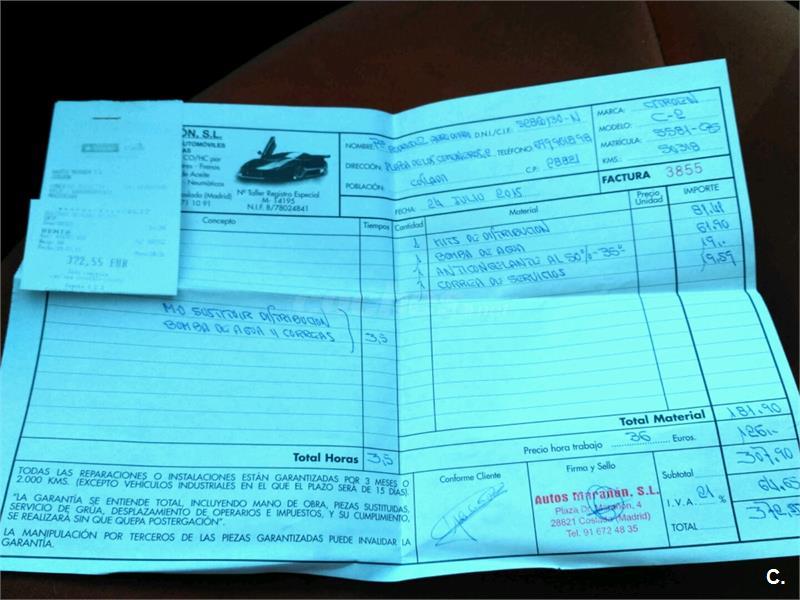 372,55 EUR
ÓN, S.L.
AUTOMÓVILES
CO/HC por
Frenos
de Aceite
Neumáticos
Coslada (Madrid)
71 10 91
Nº Taller Registro Especial
M- 14195
N.I.F. B/78024841
NOMBRE:
D.N.I./C.I.F.
DIRECCIÓN:
TELÉFONO
POBLACIÓN:
C.P. 28821
FECHA: 24 JULIO 2015
MARCA: CITROEN
MODELO: C-2
MATRÍCULA:
KMS:
FACTURA 3855
Concepto Tiempos Cantidad Material Precio Unidad IMPORTE
1 KITS DE DISTRIBUCION 81,41
1 BOMBA DE AGUA 61,90
1 ANTICONGELANTE AL 50%-35º 19,00
1 CORREA DE SERVICIOS 19,59
M.O SUSTITUIR DISTRIBUCION
BOMBA DE AGUA Y CORREAS 3,5
Total Horas 3,5
Total Material 181.90
Precio hora trabajo 36 Euros. 126.-
Subtotal 307,90
I.V.A. 21 % 64,65
TOTAL 372,55
Conforme Cliente
Firma y Sello
Autos Marañón, S.L.
Plaza Dr. Marañón, 4
28821 Coslada (Madrid)
Tel. 91 672 48 35
TODAS LAS REPARACIONES O INSTALACIONES ESTÁN GARANTIZADAS POR 3 MESES O
2.000 KMS. (EXCEPTO VEHÍCULOS INDUSTRIALES EN EL QUE EL PLAZO SERÁ DE 15 DÍAS).
"LA GARANTÍA SE ENTIENDE TOTAL, INCLUYENDO MANO DE OBRA, PIEZAS SUSTITUIDAS,
SERVICIO DE GRÚA, DESPLAZAMIENTO DE OPERARIOS E IMPUESTOS, Y SU CUMPLIMIENTO,
SE REALIZARÁ SIN QUE QUEPA POSTERGACIÓN".
LA MANIPULACIÓN POR TERCEROS DE LAS PIEZAS GARANTIZADAS PUEDE INVALIDAR LA
GARANTÍA.
C.